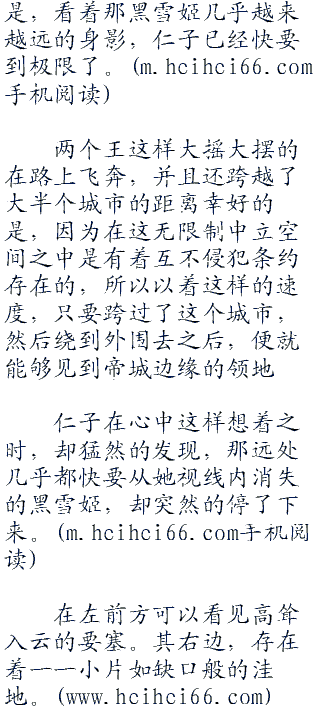 是，看着那黑雪姬几乎越来
越远的身影，仁子已经快要
到极限了。(m.hcihci66.com
手机阅读)
两个王这样大摇大摆的
在路上飞奔，并且还跨越了
大半个城市的距离幸好的
是，因为在这无限制中立空
间之中是有着互不侵犯条约
存在的，所以以着这样的速
度，只要跨过了这个城市，
然后绕到外围去之后，便就
能够见到帝城边缘的领地
仁子在心中这样想着之
时，却猛然的发现，那远处
几乎都快要从她视线内消失
的黑雪姬，却突然的停了下
来。(m.hcihci66.com手机阅
读)
在左前方可以看见高耸
入云的要塞。其右边，存在
着一一小片如缺口般的洼
地。(www.hcihci66.com)